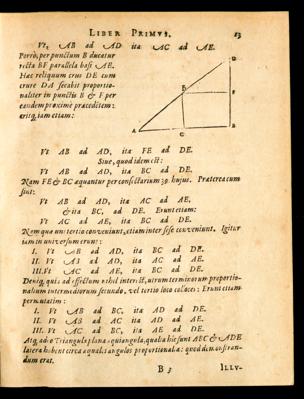 LIBER PRIMVS. 13
Vt, AB ad AD ita AC ad AE.
Porrò, per punctum B ducatur
recta BF parallela basi AE.
Hac reliquum crus DE cum
crure DA secabit proportio-
naliter in punctis B & F per
eandem proxime præcedētem:
eritq́, iam etiam:
D
B F
A C E
Vt AB ad AD, ita FE ad DE.
Siue, quod idem est:
Vt AB ad AD, ita BC ad DE.
Nam FE & BC æquantur per consectarium 39. hujus. Præterea cum
sint:
Vt AB ad AD, ita AC ad AE,
& ita BC, ad DE. Erunt etiam:
Vt AC ad AE, ita BC ad DE.
Nam quæ uni tertio conveniunt, etiam inter sese conveniunt. Igitur
jam in universum erunt:
I. Vt AB ad AD, ita BC ad DE.
II. Vt AB ad AD, ita AC ad AE.
III. Vt AC ad AE, ita BC ad DE.
Deniq́, quia ad effectum nihil interest, utrum terminorum proportio-
nalium intermediorum secundo, vel tertio loco colloces: Erunt etiam
permutatim:
I. Vt AB ad BC, ita AD ad DE.
II. Vt AB ad AC ita AD ad AE.
III. Vt AC ad BC, ita AE ad DE.
Atq́, adeo Triangula plana æquiangula, qualia hic sunt ABC & ADE
latera habent circa æquales angulos proportionalia: quod demonstran-
dum erat.
B 3 ILLV-